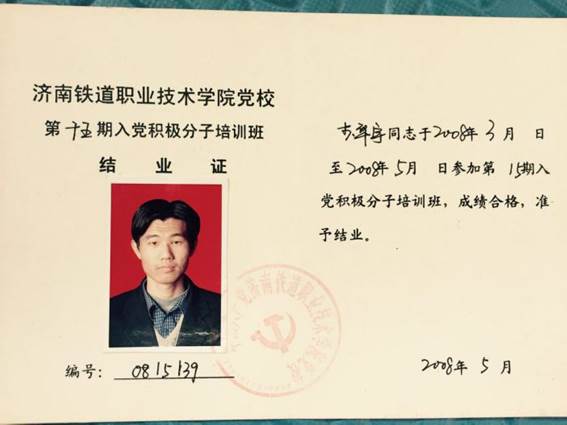 济南铁道职业技术学院党校
第十五期入党积极分子培训班
结业证
编号：0815139
同志于2008年3月 日
至2008年5月 日参加第15期入
党积极分子培训班，成绩合格，准
予结业。
2008年5月